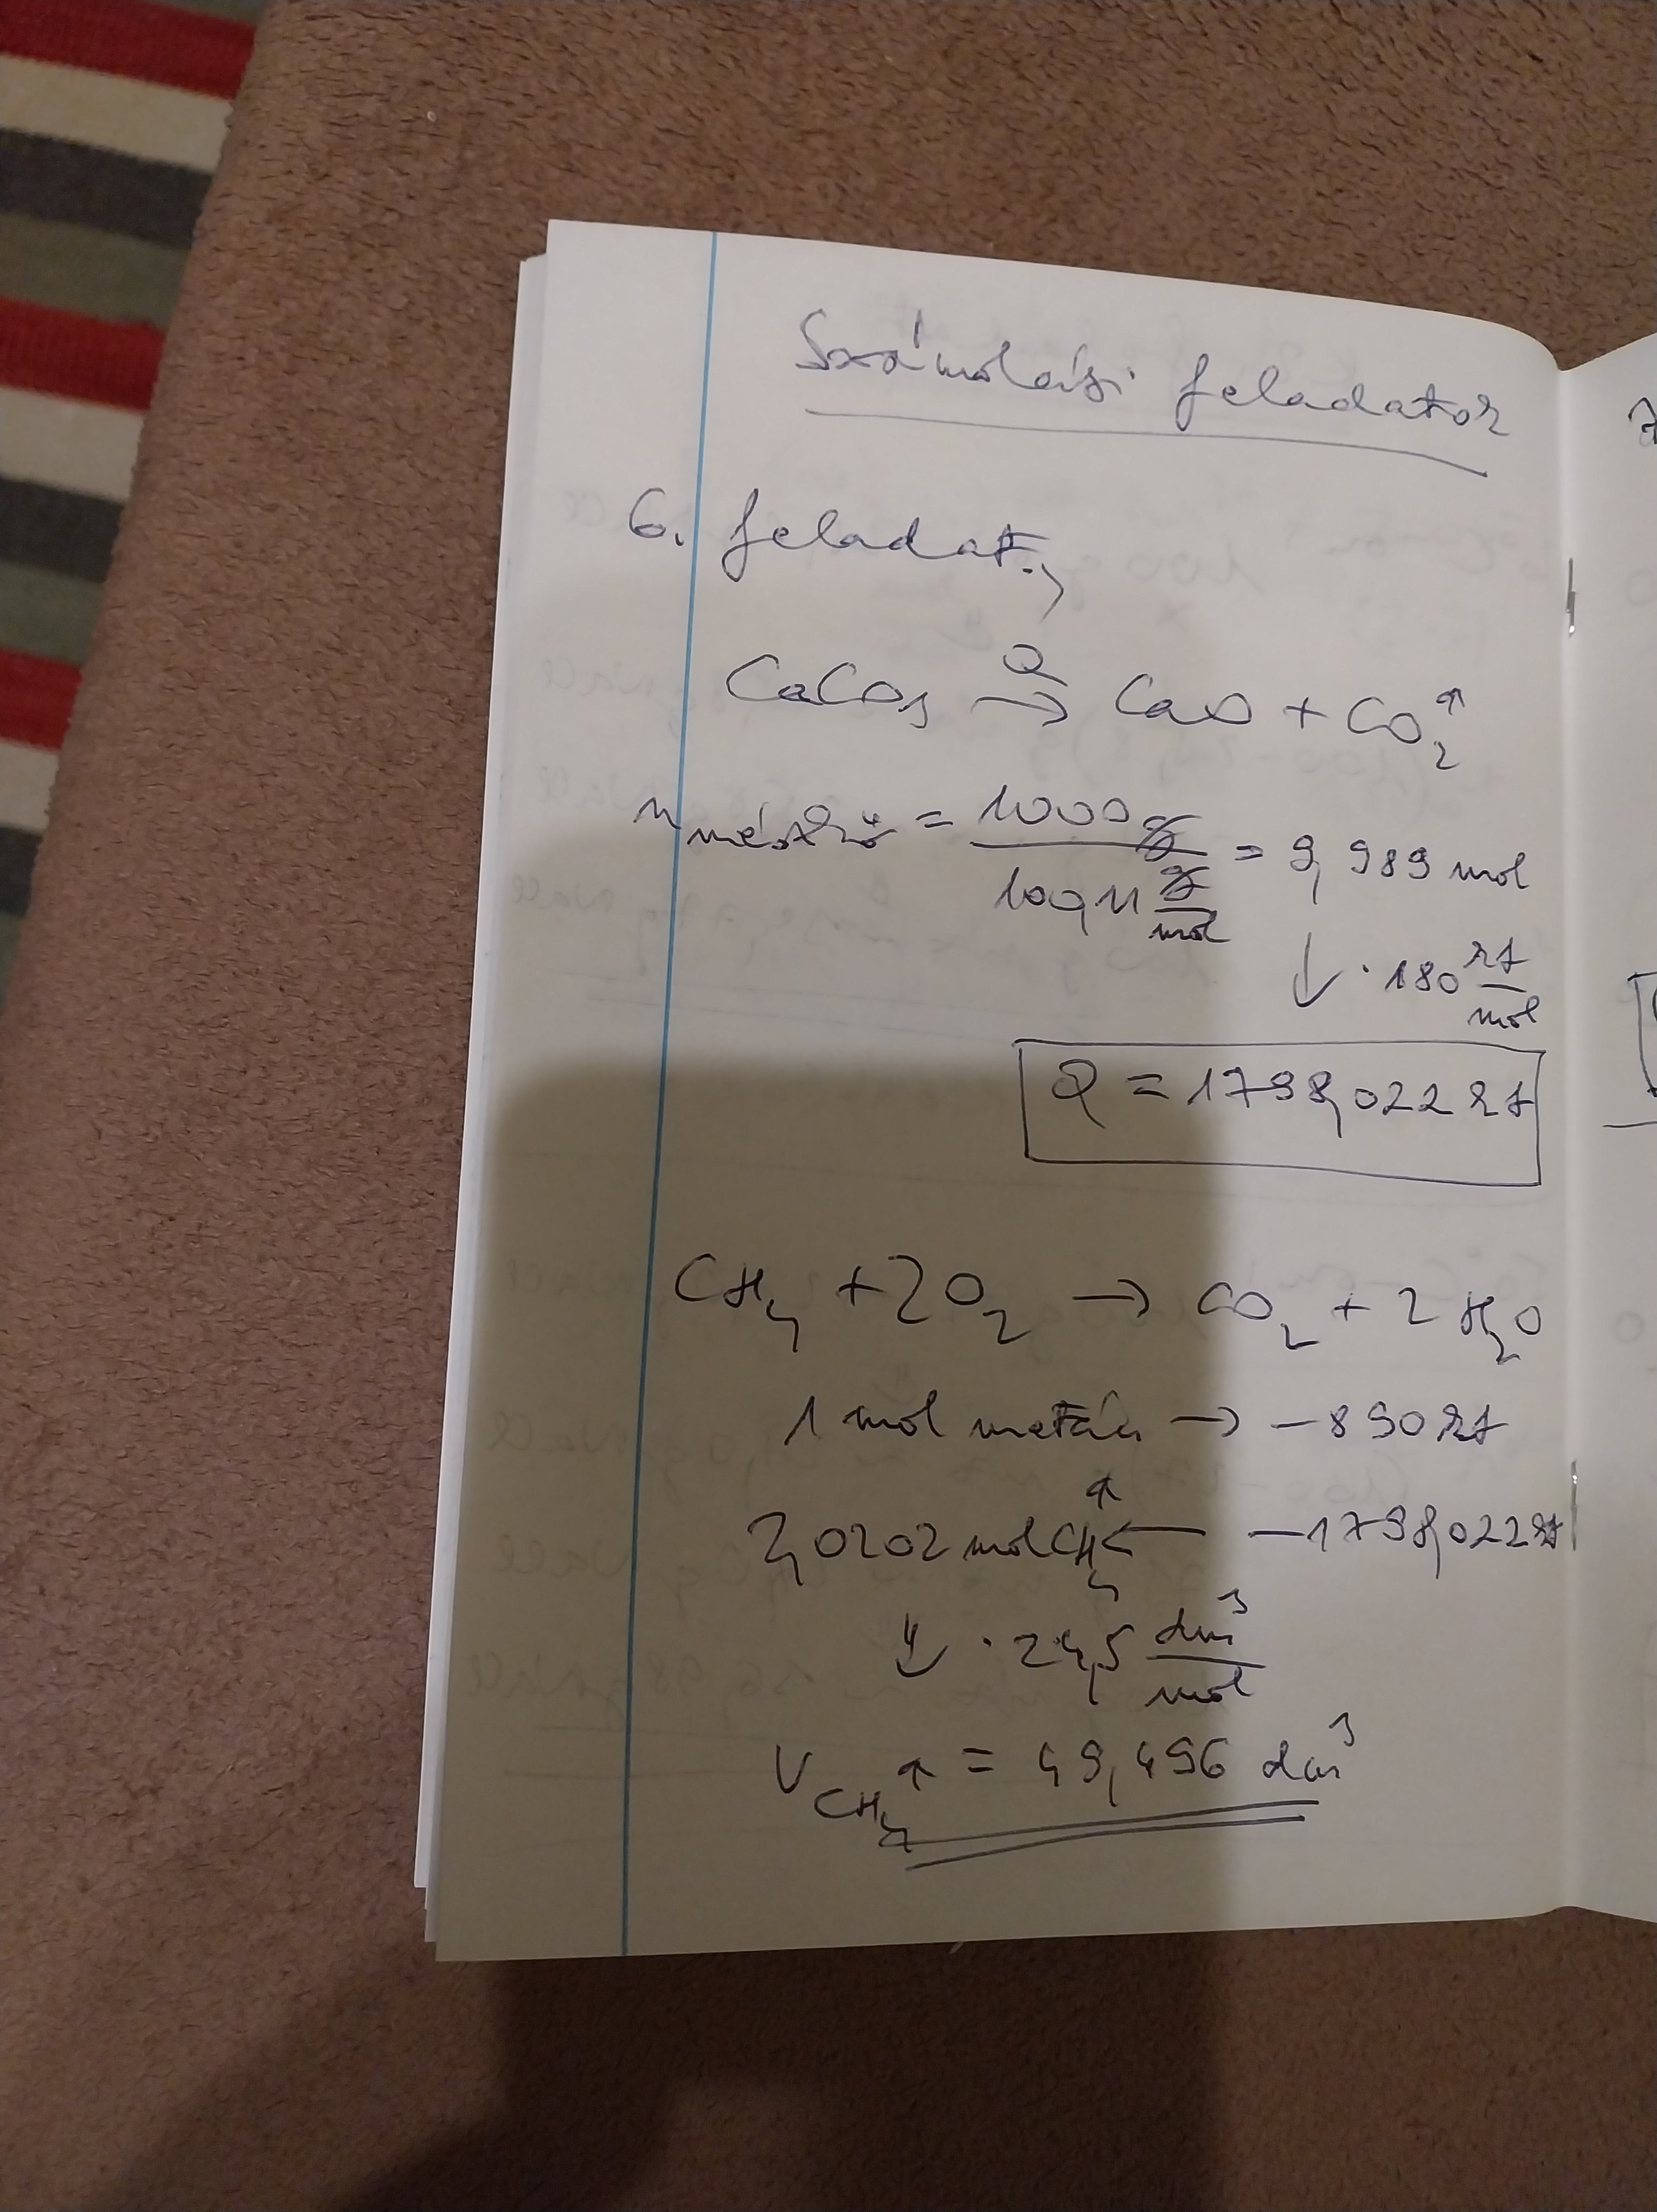 Számolási feladatok
6. feladat.,
CaCO3 →Q CaO + CO2↑
n mészkő = 1000 g / 100,11 g/mol = 9,989 mol
↓ · 180 kJ/mol
Q = 1798,022 kJ
CH4 + 2O2 → CO2 + 2 H2O
1 mol metán → -890 kJ
2,0202 mol CH4↑ ← -1798,022 kJ
↓ · 24,5 dm³/mol
V CH4↑ = 49,496 dm³